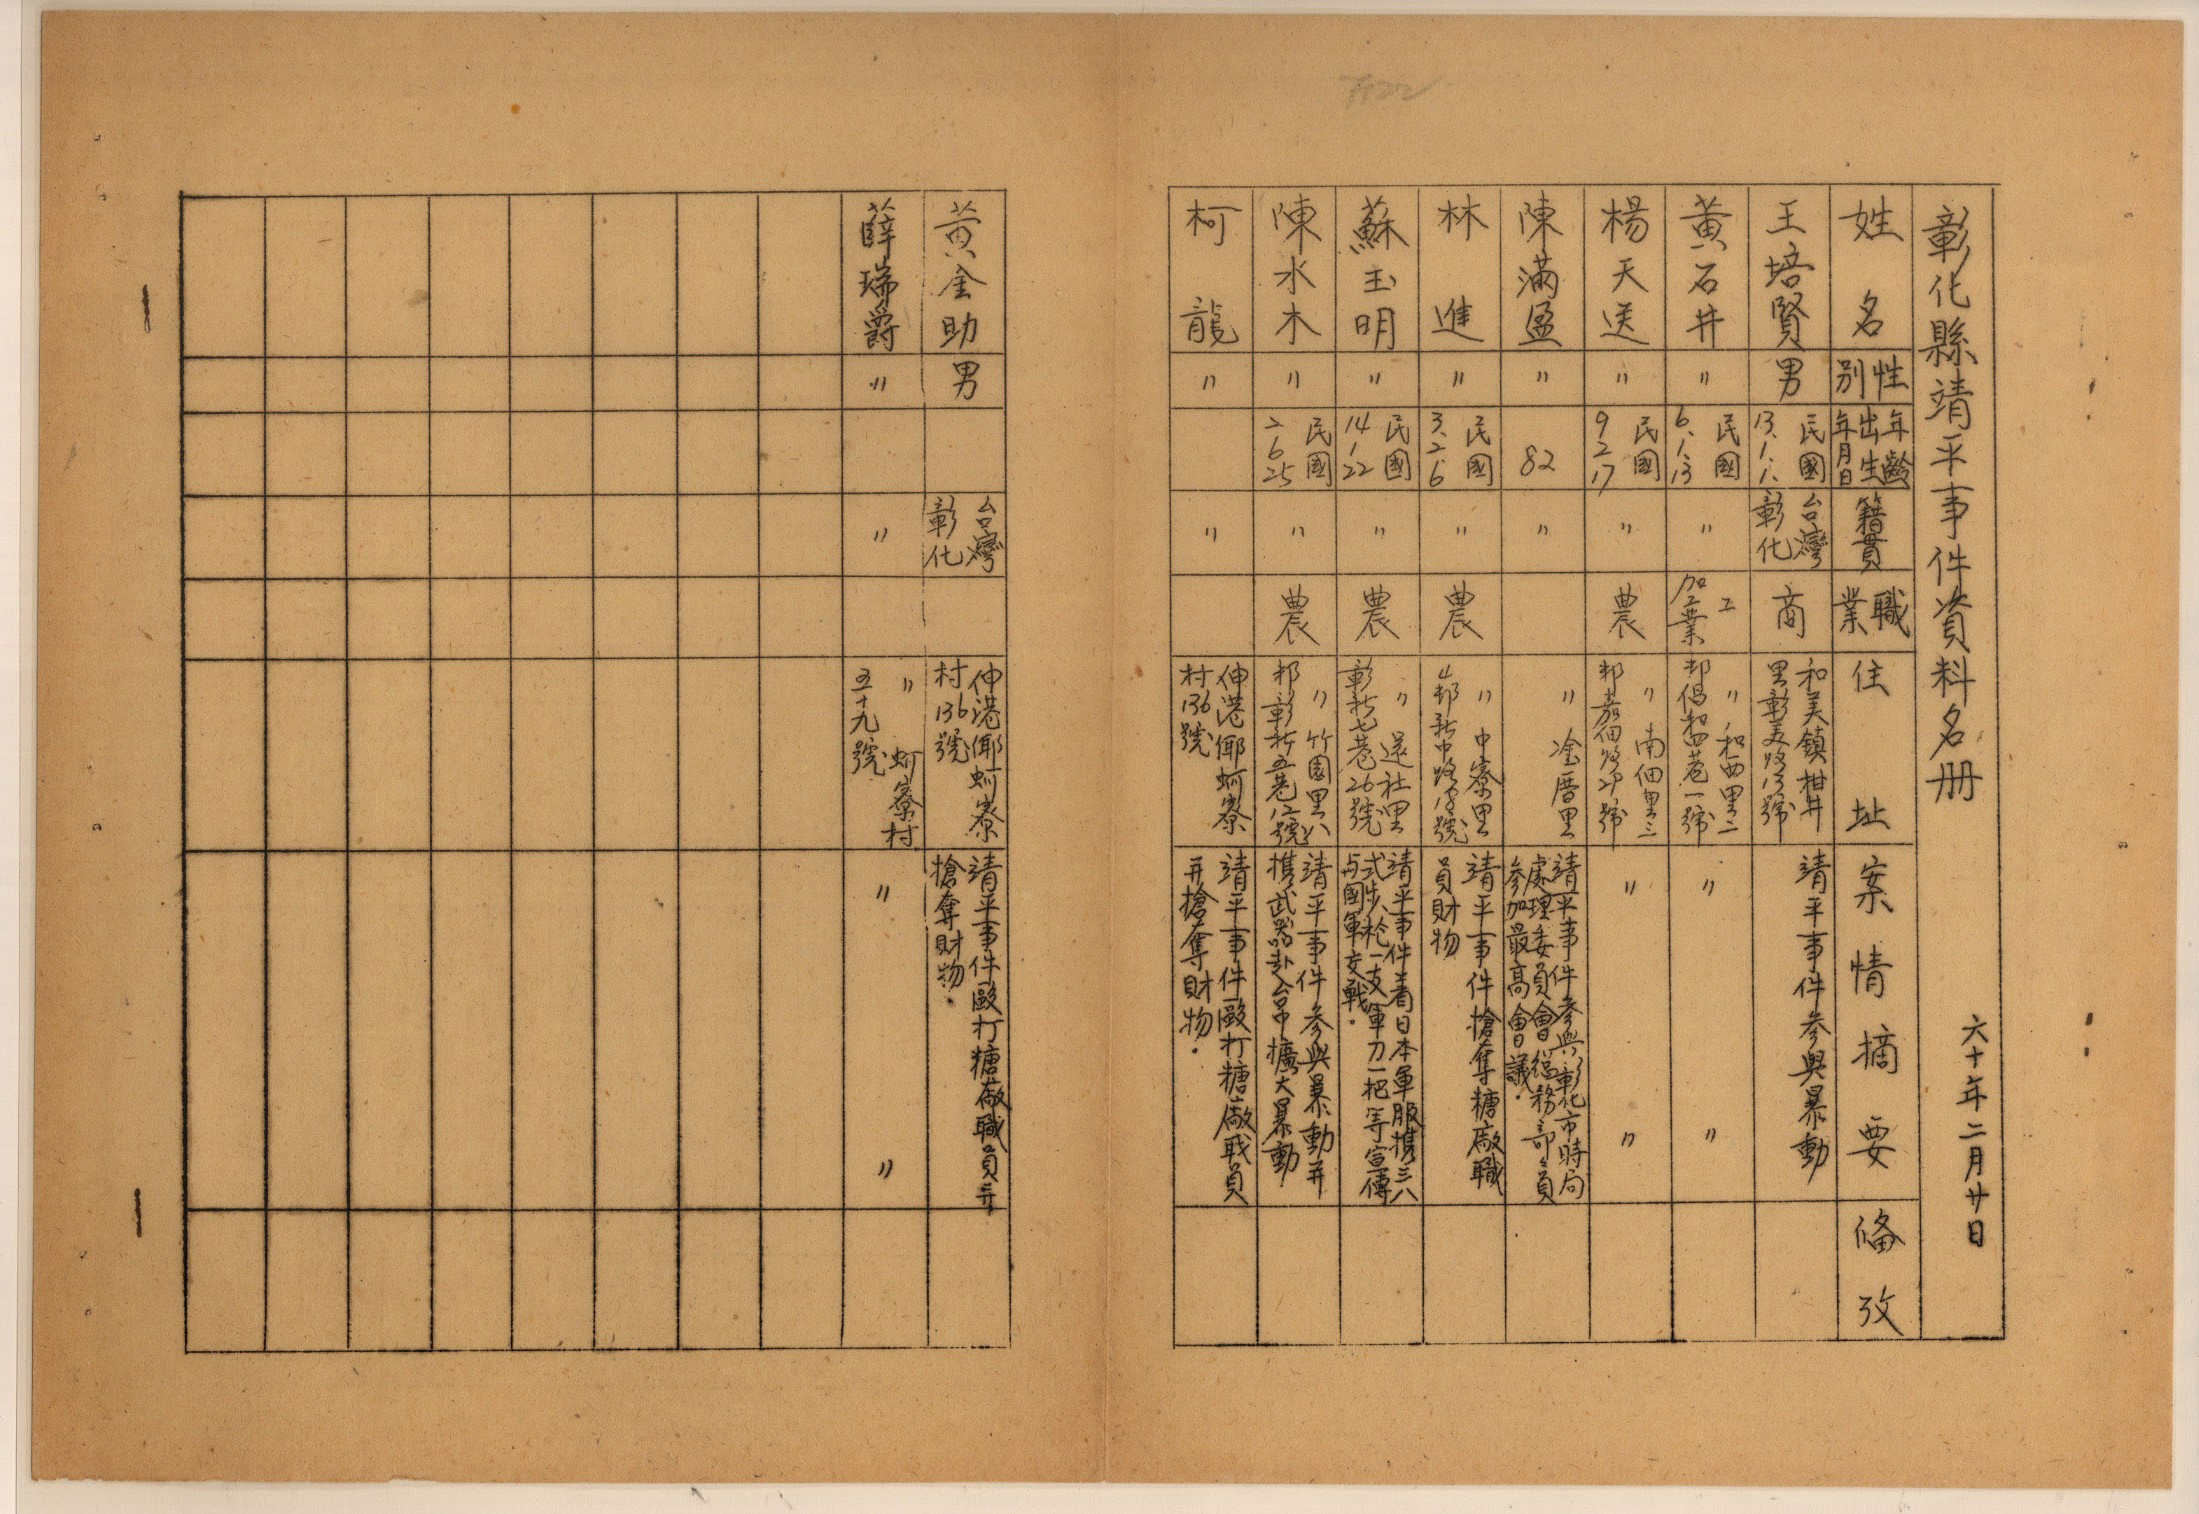 彰化縣靖平事件資料名册
六十年二月廿日
姓名
性別
年齡
出生
年月日
籍貫
職業
住址
案情摘要
備攷
王培賢
男
民國
13.1.1.
台灣
彰化
商
和美鎮柑井
里彰美路13號
靖平事件參與暴動
黃石井
〃
民國
6.1.13
〃
工
加工業
〃和西里二
鄰
巷一號
〃 〃
楊天送
〃
民國
9 2 17
〃
農
〃南佃里三
鄰嘉佃路
號
〃 〃
陳滿盈
〃
82
〃
〃 里
靖平事件參與彰化市時局
處理委員會總務部部員
參加最高會議.
林進
〃
民國
3.2.6
〃
農
〃中寮里
4鄰彰新中路
號
靖平事件搶奪糖廠職
員財物
蘇玉明
〃
民國
14 1 22
〃
農
〃還社里
彰新七巷26號
靖平事件着日本軍服携三八
式步枪一支軍刀一把等宣傳
与國軍交戰.
陳水木
〃
民國
2 6 25
〃
農
〃竹園里八
鄰彰新五巷12號
靖平事件參與暴動并
携武器赴台中擴大暴動
柯龍
〃
〃
伸港鄉蚵寮
村136號
靖平事件毆打糖廠戢員
并搶奪財物.
黃金助
男
台灣
彰化
伸港鄉蚵寮
村136號
靖平事件毆打糖廠職員并
搶奪財物.
薛瑞爵
〃
〃
〃蚵寮村
五十九號
〃 〃